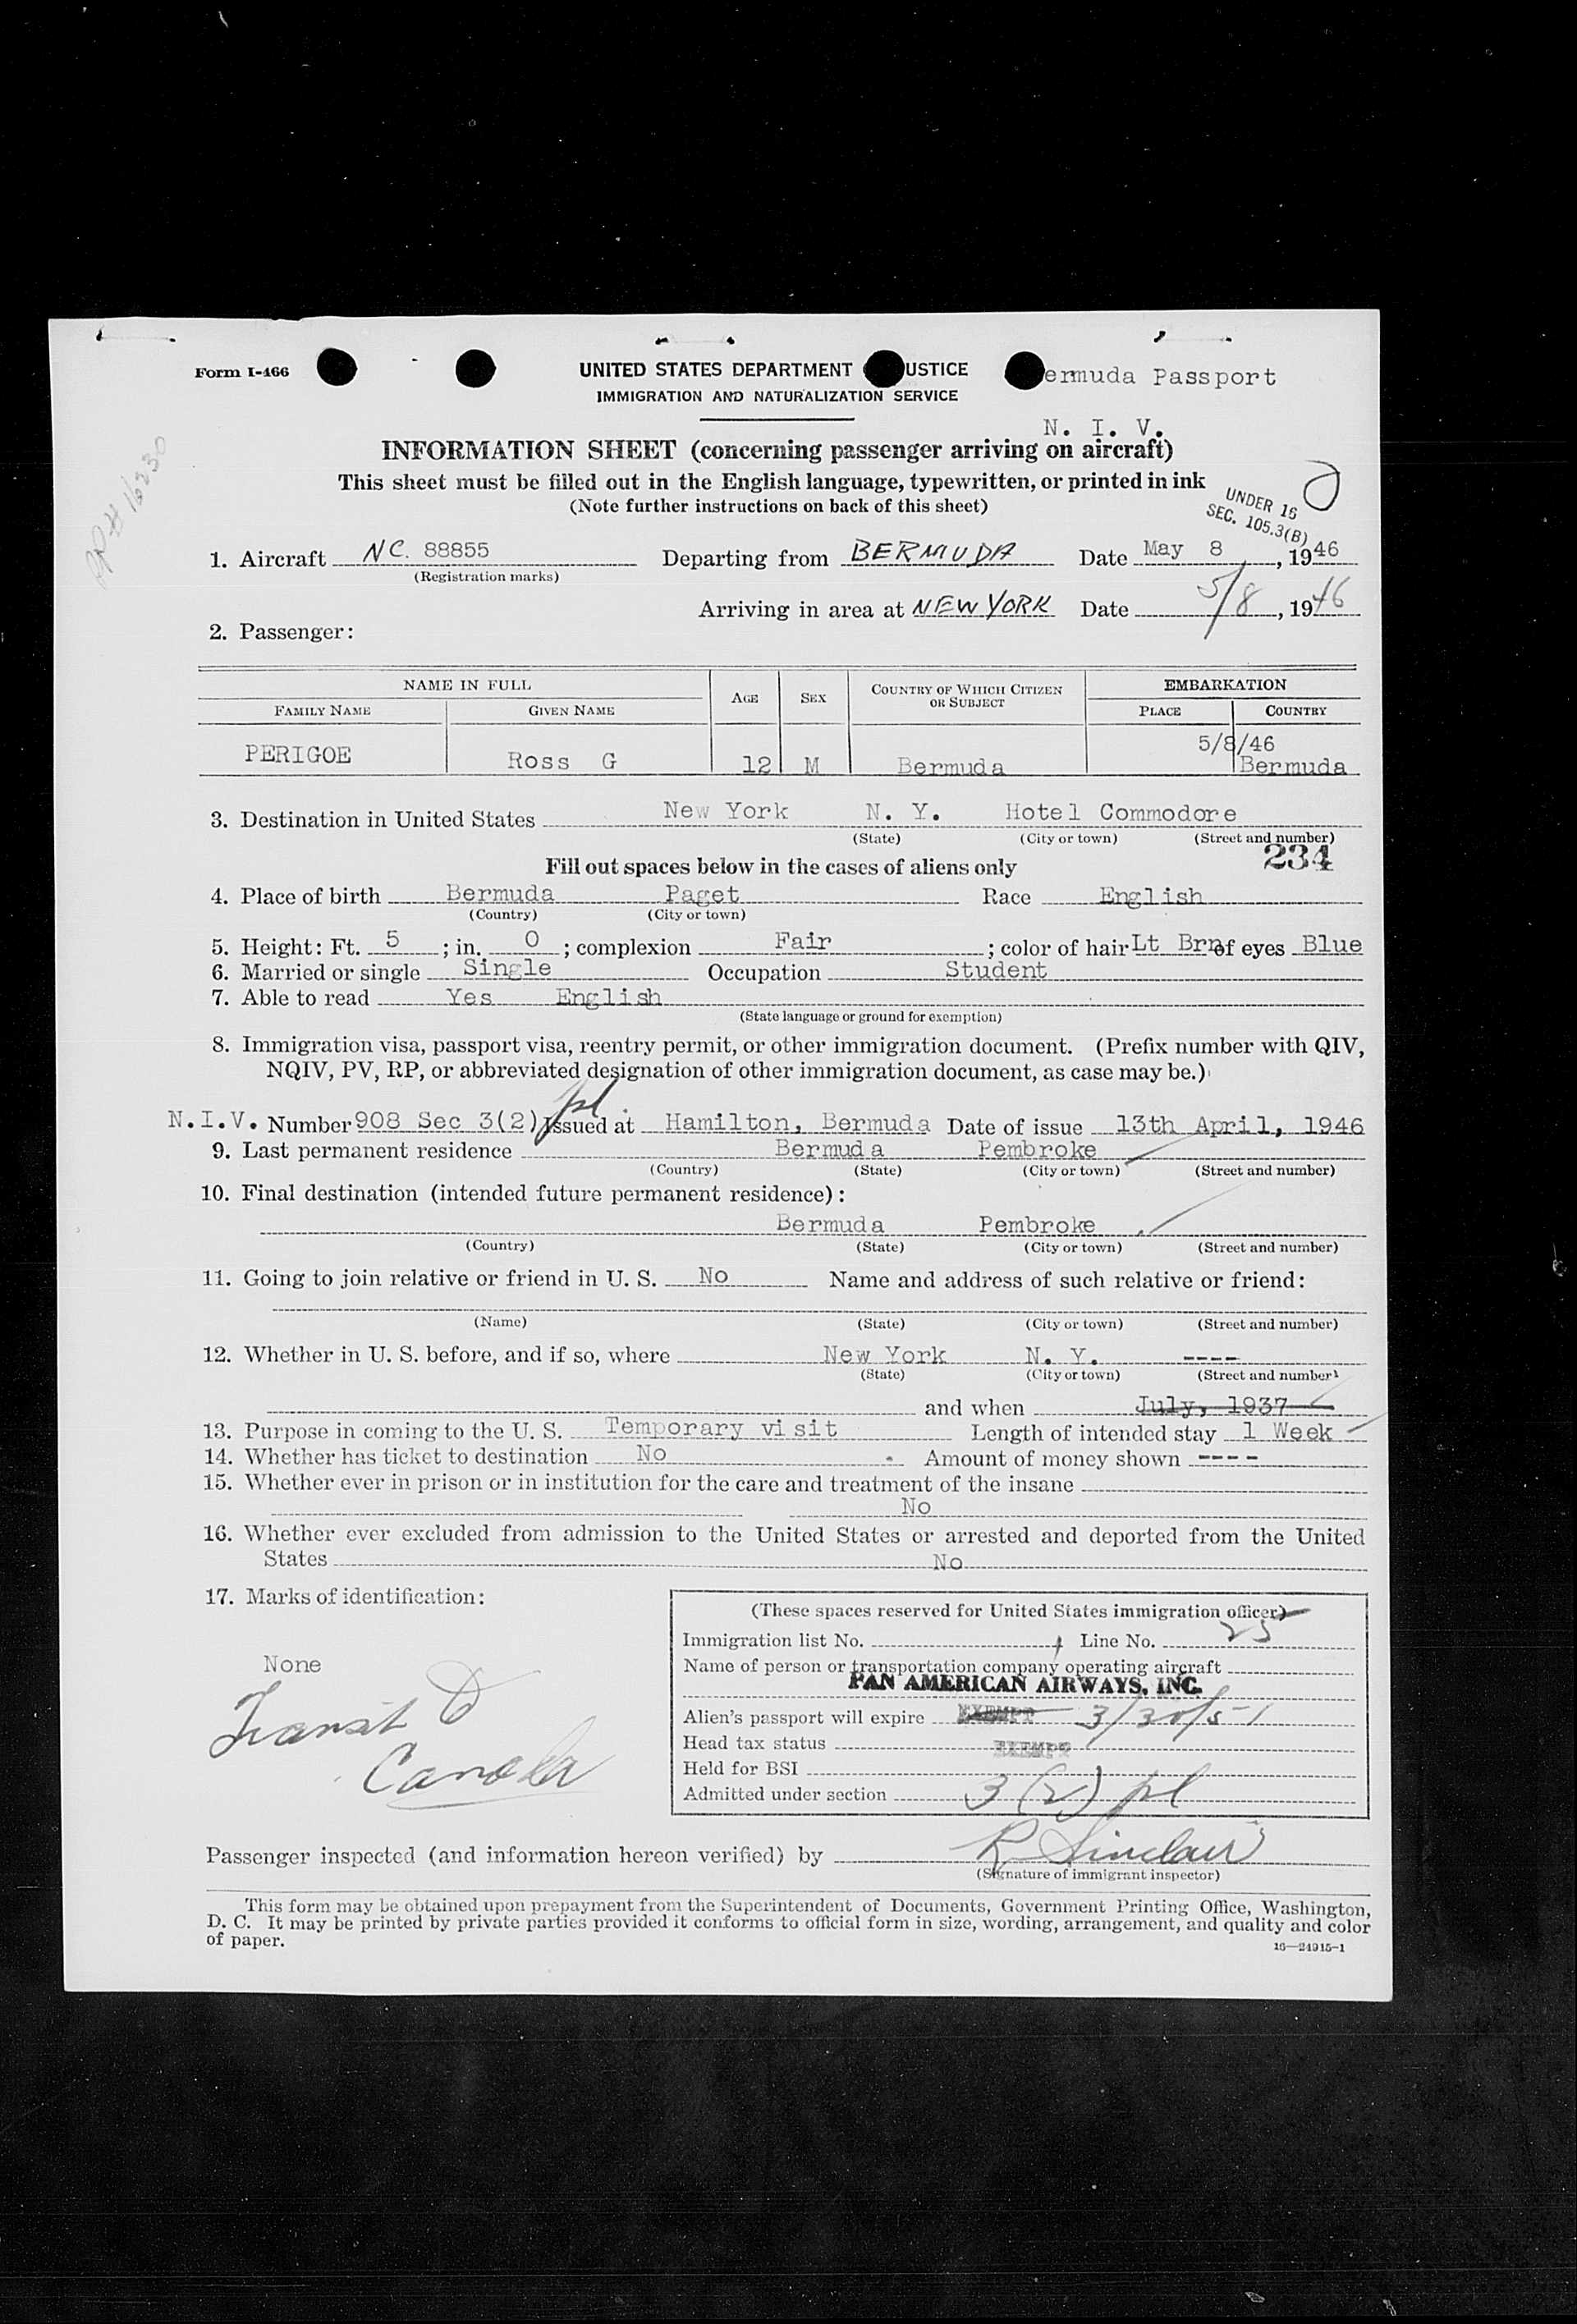 Form I-466 UNITED STATES DEPARTMENT USTICE ermuda Passport
IMMIGRATION AND NATURALIZATION SERVICE
N. I. V.
INFORMATION SHEET (concerning passenger arriving on aircraft)
This sheet must be filled out in the English language, typewritten, or printed in ink
(Note further instructions on back of this sheet)
UNDER 16
SEC. 105.3(B)
1. Aircraft NC. 88855 Departing from BERMUDA Date May 8, 1946
(Registration marks)
Arriving in area at NEW YORK Date 5/8, 1946
2. Passenger:
NAME IN FULL AGE SEX COUNTRY OF WHICH CITIZEN OR SUBJECT EMBARKATION
FAMILY NAME GIVEN NAME PLACE COUNTRY
5/8/46
PERIGOE Ross G 12 M Bermuda Bermuda
3. Destination in United States New York N. Y. Hotel Commodore
(State) (City or town) (Street and number)
234
Fill out spaces below in the cases of aliens only
4. Place of birth Bermuda Paget Race English
(Country) (City or town)
5. Height: Ft. 5; in. 0; complexion Fair; color of hair Lt Brn of eyes Blue
6. Married or single Single Occupation Student
7. Able to read Yes English
(State language or ground for exemption)
8. Immigration visa, passport visa, reentry permit, or other immigration document. (Prefix number with QIV,
NQIV, PV, RP, or abbreviated designation of other immigration document, as case may be.)
N.I.V. Number 908 Sec 3(2) Issued at Hamilton, Bermuda Date of issue 13th April, 1946
9. Last permanent residence Bermuda Pembroke
(Country) (State) (City or town) (Street and number)
10. Final destination (intended future permanent residence):
Bermuda Pembroke
(Country) (State) (City or town) (Street and number)
11. Going to join relative or friend in U. S. No Name and address of such relative or friend:
(Name) (State) (City or town) (Street and number)
12. Whether in U. S. before, and if so, where New York N. Y. ----
(State) (City or town) (Street and number)
and when July, 1937
13. Purpose in coming to the U. S. Temporary visit Length of intended stay 1 Week
14. Whether has ticket to destination No Amount of money shown ----
15. Whether ever in prison or in institution for the care and treatment of the insane
No
16. Whether ever excluded from admission to the United States or arrested and deported from the United
States No
17. Marks of identification:
None
Transit
Canada
(These spaces reserved for United States immigration officer)
Immigration list No. 1 Line No. 25
Name of person or transportation company operating aircraft
PAN AMERICAN AIRWAYS, INC.
Alien's passport will expire EXEMPT 3/30/51
Head tax status EXEMPT
Held for BSI
Admitted under section 3(2) pl
Passenger inspected (and information hereon verified) by R Sinclair
(Signature of immigrant inspector)
This form may be obtained upon prepayment from the Superintendent of Documents, Government Printing Office, Washington,
D. C. It may be printed by private parties provided it conforms to official form in size, wording, arrangement, and quality and color
of paper.
16—24915-1